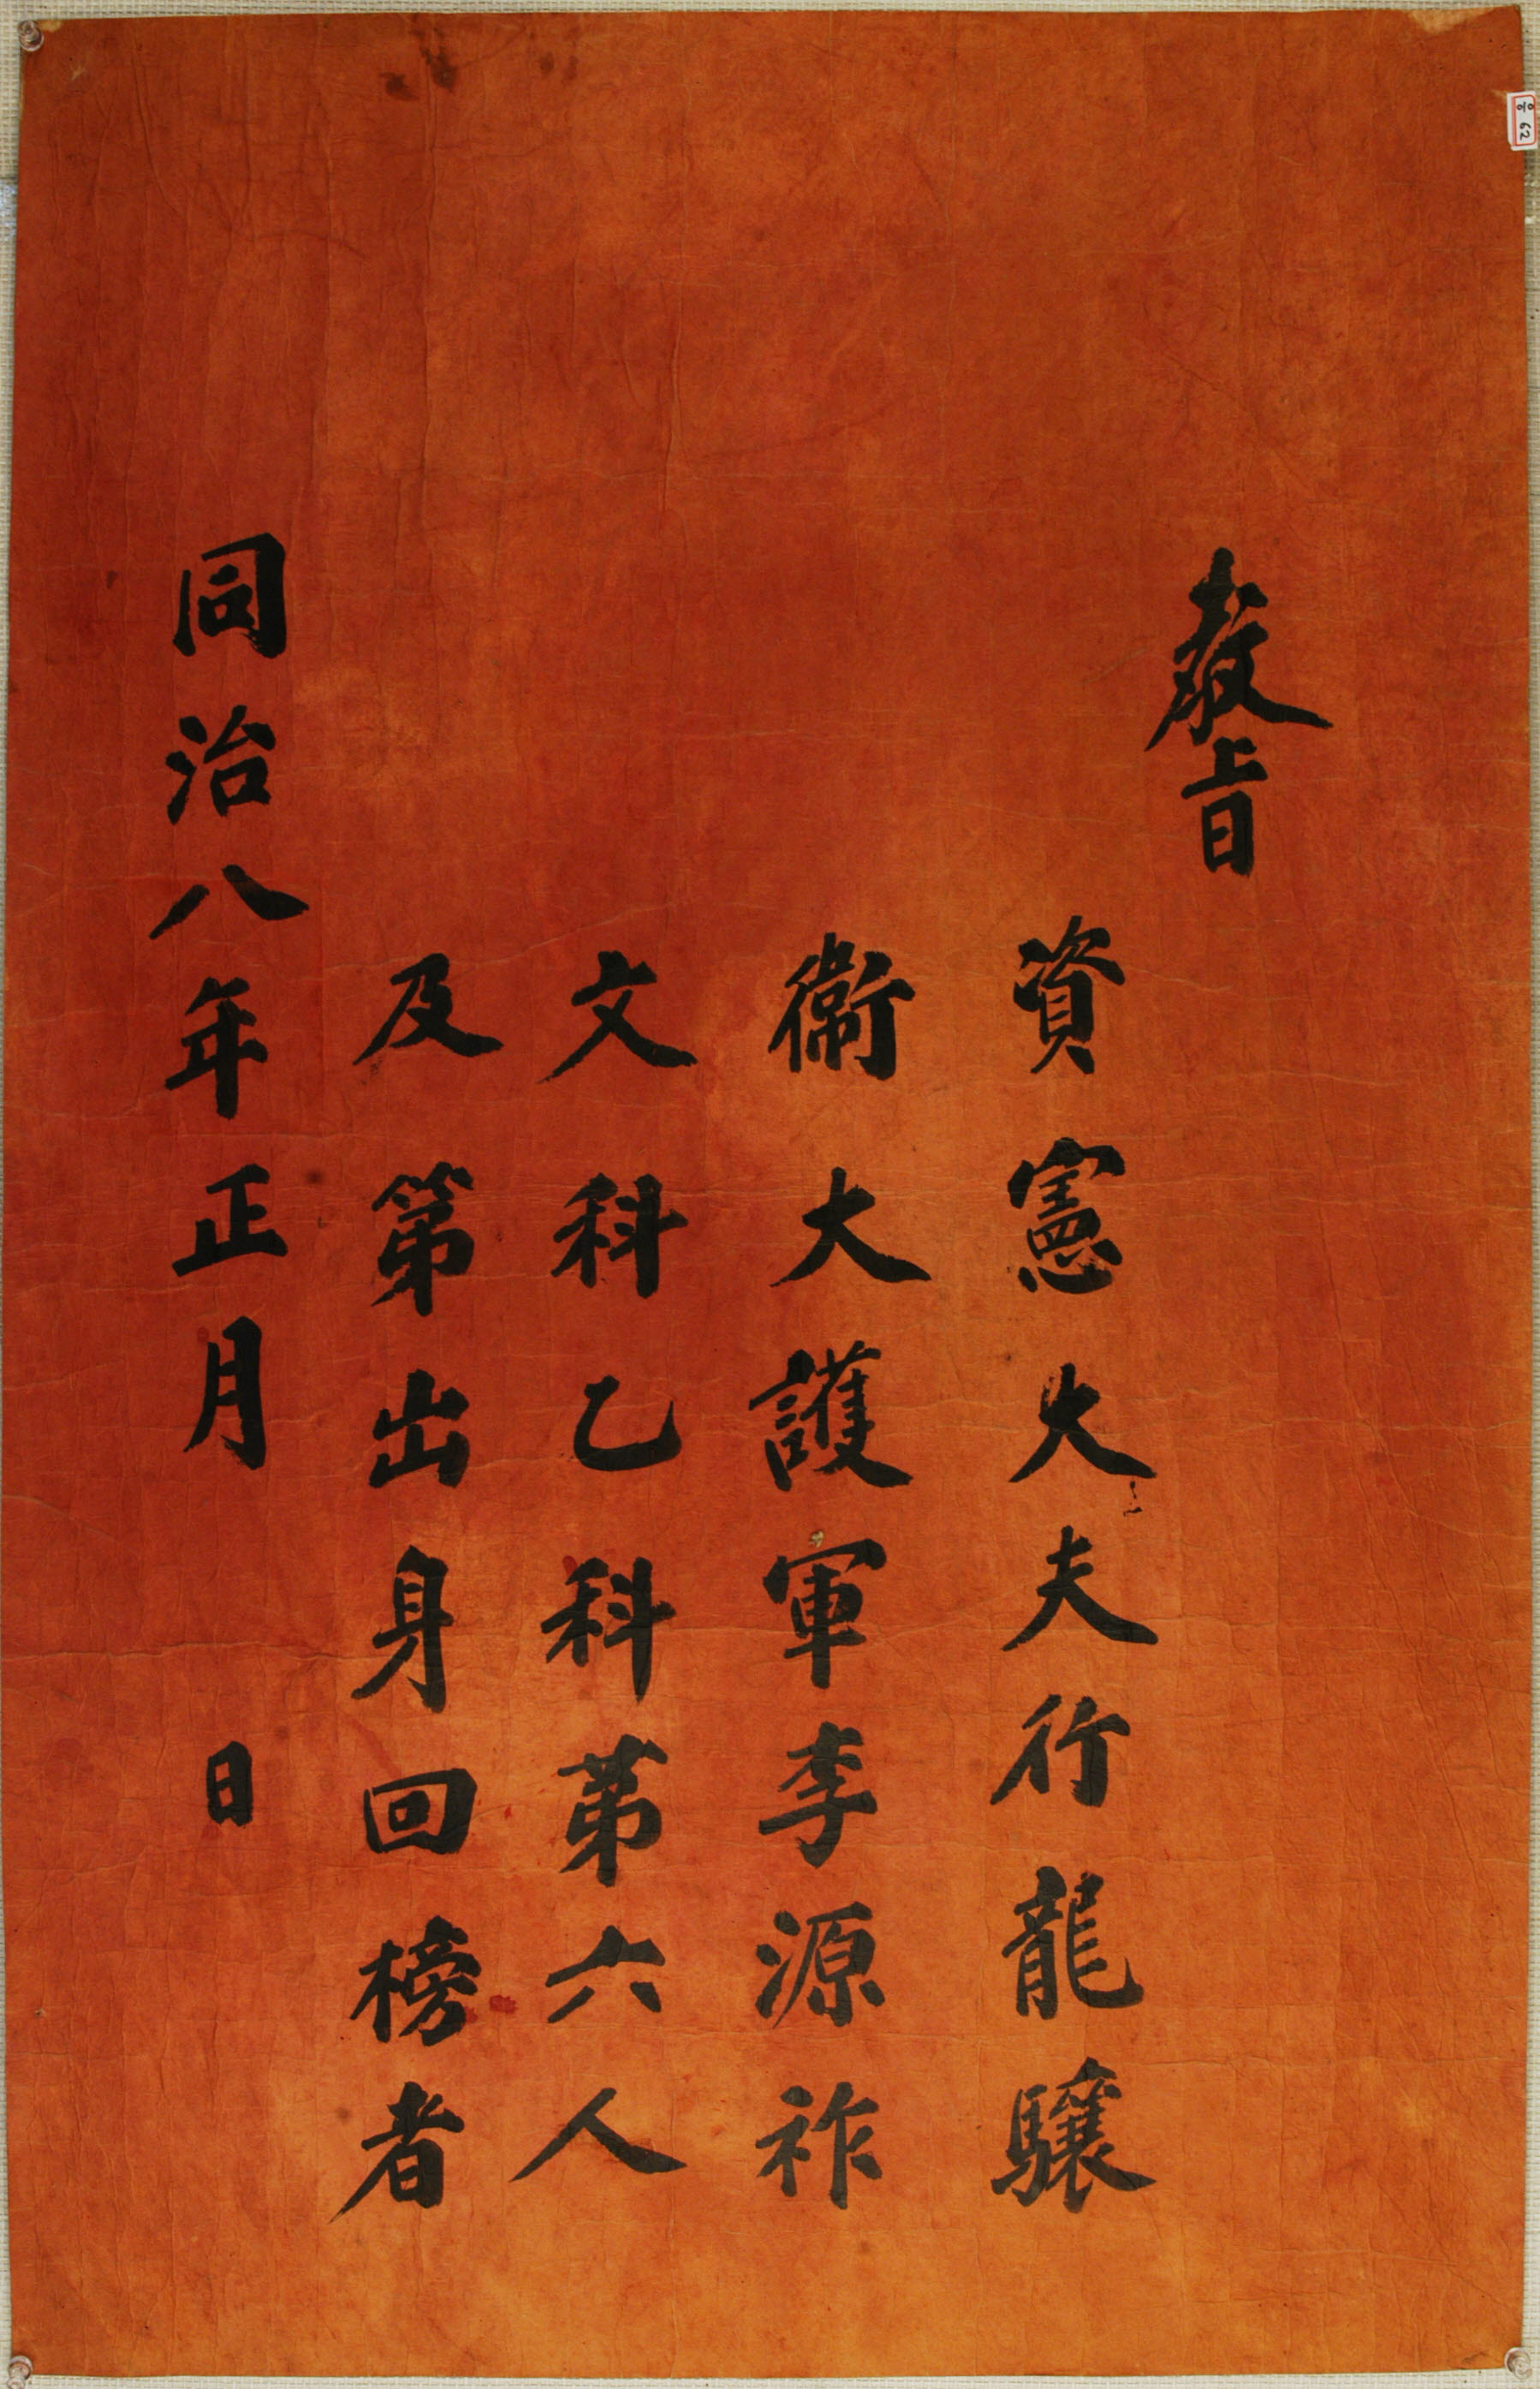 敎旨
資憲大夫行龍驤
衛大護軍李源祚
文科乙科第六人
及第出身回榜者
同治八年正月 日
62